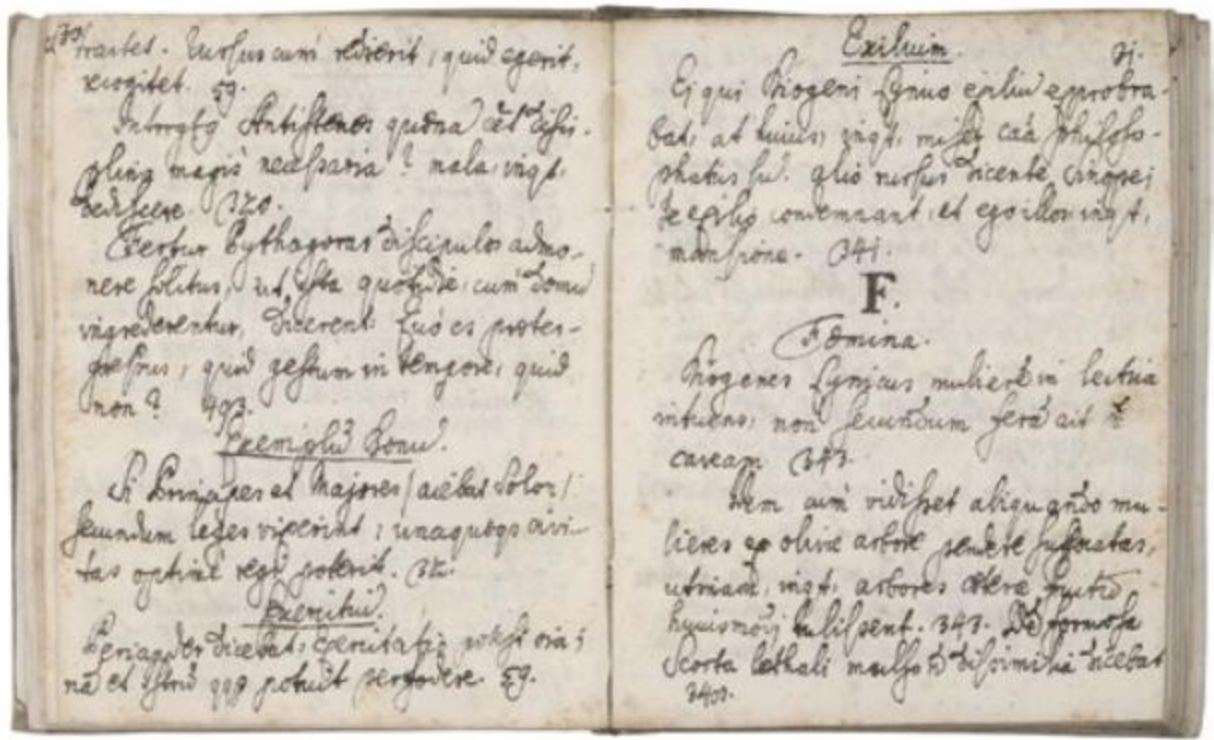 tractet. Rursus cum redierit, quid egerit,
recogitet. 59.
Interrogatus Antisthenes quaena
plina magis necessaria? mala, inqt,
dediscere. 320.
Fertur Pythagoras discipulos admo-
nere solitus, ut ista quotidie, cum domu
ingrederentur, dicerent. Quò es praeter-
gressus, quid gestum in tempore, quid
non? 493.
Exemplū Bonū.
Si Principes et Majores (aiebat Solon)
secundum leges vixerint, unaquaeqs civi-
tas optimè regi poterit. 32.
Periander dicebat,
nā et potuit perfodere. 59.
Exilium.
31.
Ei qui Diogeni Cynico exiliū exprobra-
bat, at huius, inqt, miser caā philoso-
phatus sū. aliò rursus dicente, Sinopei
te exilio condemnant, et ego illos, inqt,
mansione. 341.
F.
Foemina.
Diogenes Cynicus mulierē in lectica
intuens, non secundum ferā ait
caveam 343.
Idem cùm vidisset aliquando mu-
lieres ex olivae arbore pendere suffocatas,
utinam, inqt, arbores caeterae fructū
huiusmodi tulissent. 343. formosa
Scorta lethali mulso dicebat